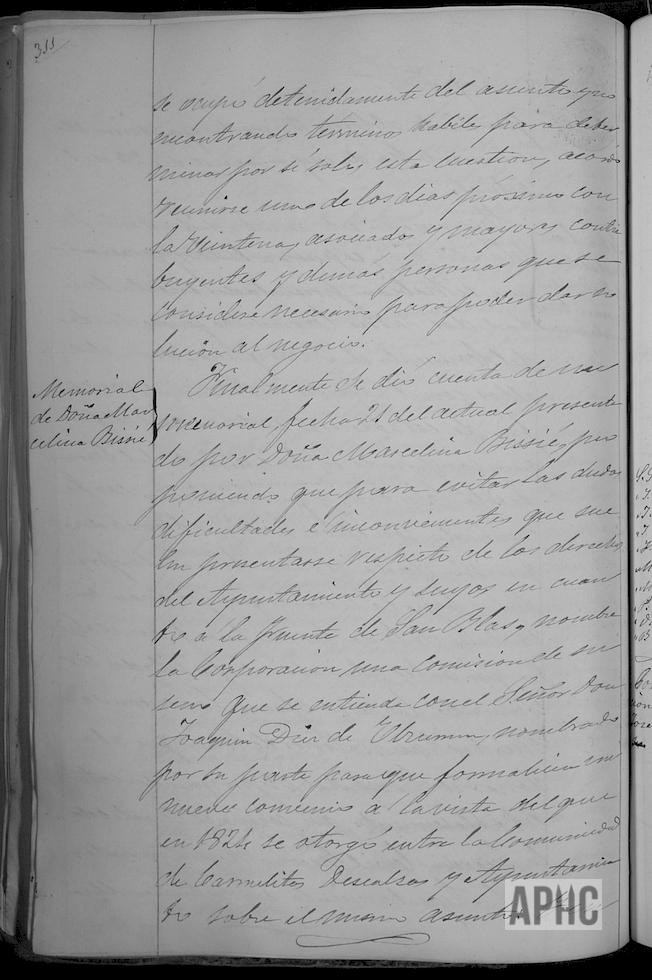 311
se ocupó detenidamente del asunto y no
encontrando terminos habiles para deter
minar por sí sola esta cuestion, acordó
reunirse uno de los dias próximos con
la Veintena, asociados y mayores contri
buyentes y demás personas que se
considere necesario para poder dar so
lucion al negocio.
Memorial
de Doña Mar
celina Bissié
Finalmente se dió cuenta de un
memorial, fecha 21 del actual presenta
do por Doña Marcelina Bissié, pro
poniendo que para evitar las dudas
dificultades é inconvenientes que sue
len presentarse respecto de los derechos
del Ayuntamiento y suyos en cuan
to á la fuente de San Blas, nombre
la Corporacion una comision de su
seno que se entienda con el Señor Don
Joaquin Diez de Ulzurrun, nombrado
por su parte para que formalicen un
nuevo convenio á la vista del que
en 1824 se otorgó entre la Comunidad
de Carmelitas Descalzos y Ayuntamien
to sobre el mismo asunto.
APHC